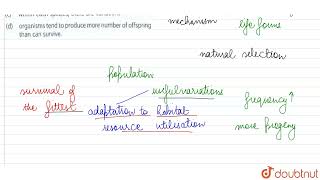 (d) organisms tend to produce more number of offspring
than can survive.
mechanism
life forms
natural selection
population
survival of
the fittest
useful variations
adaptation to habitat
resource utilisation
frequency↑
more progeny
doubtnut